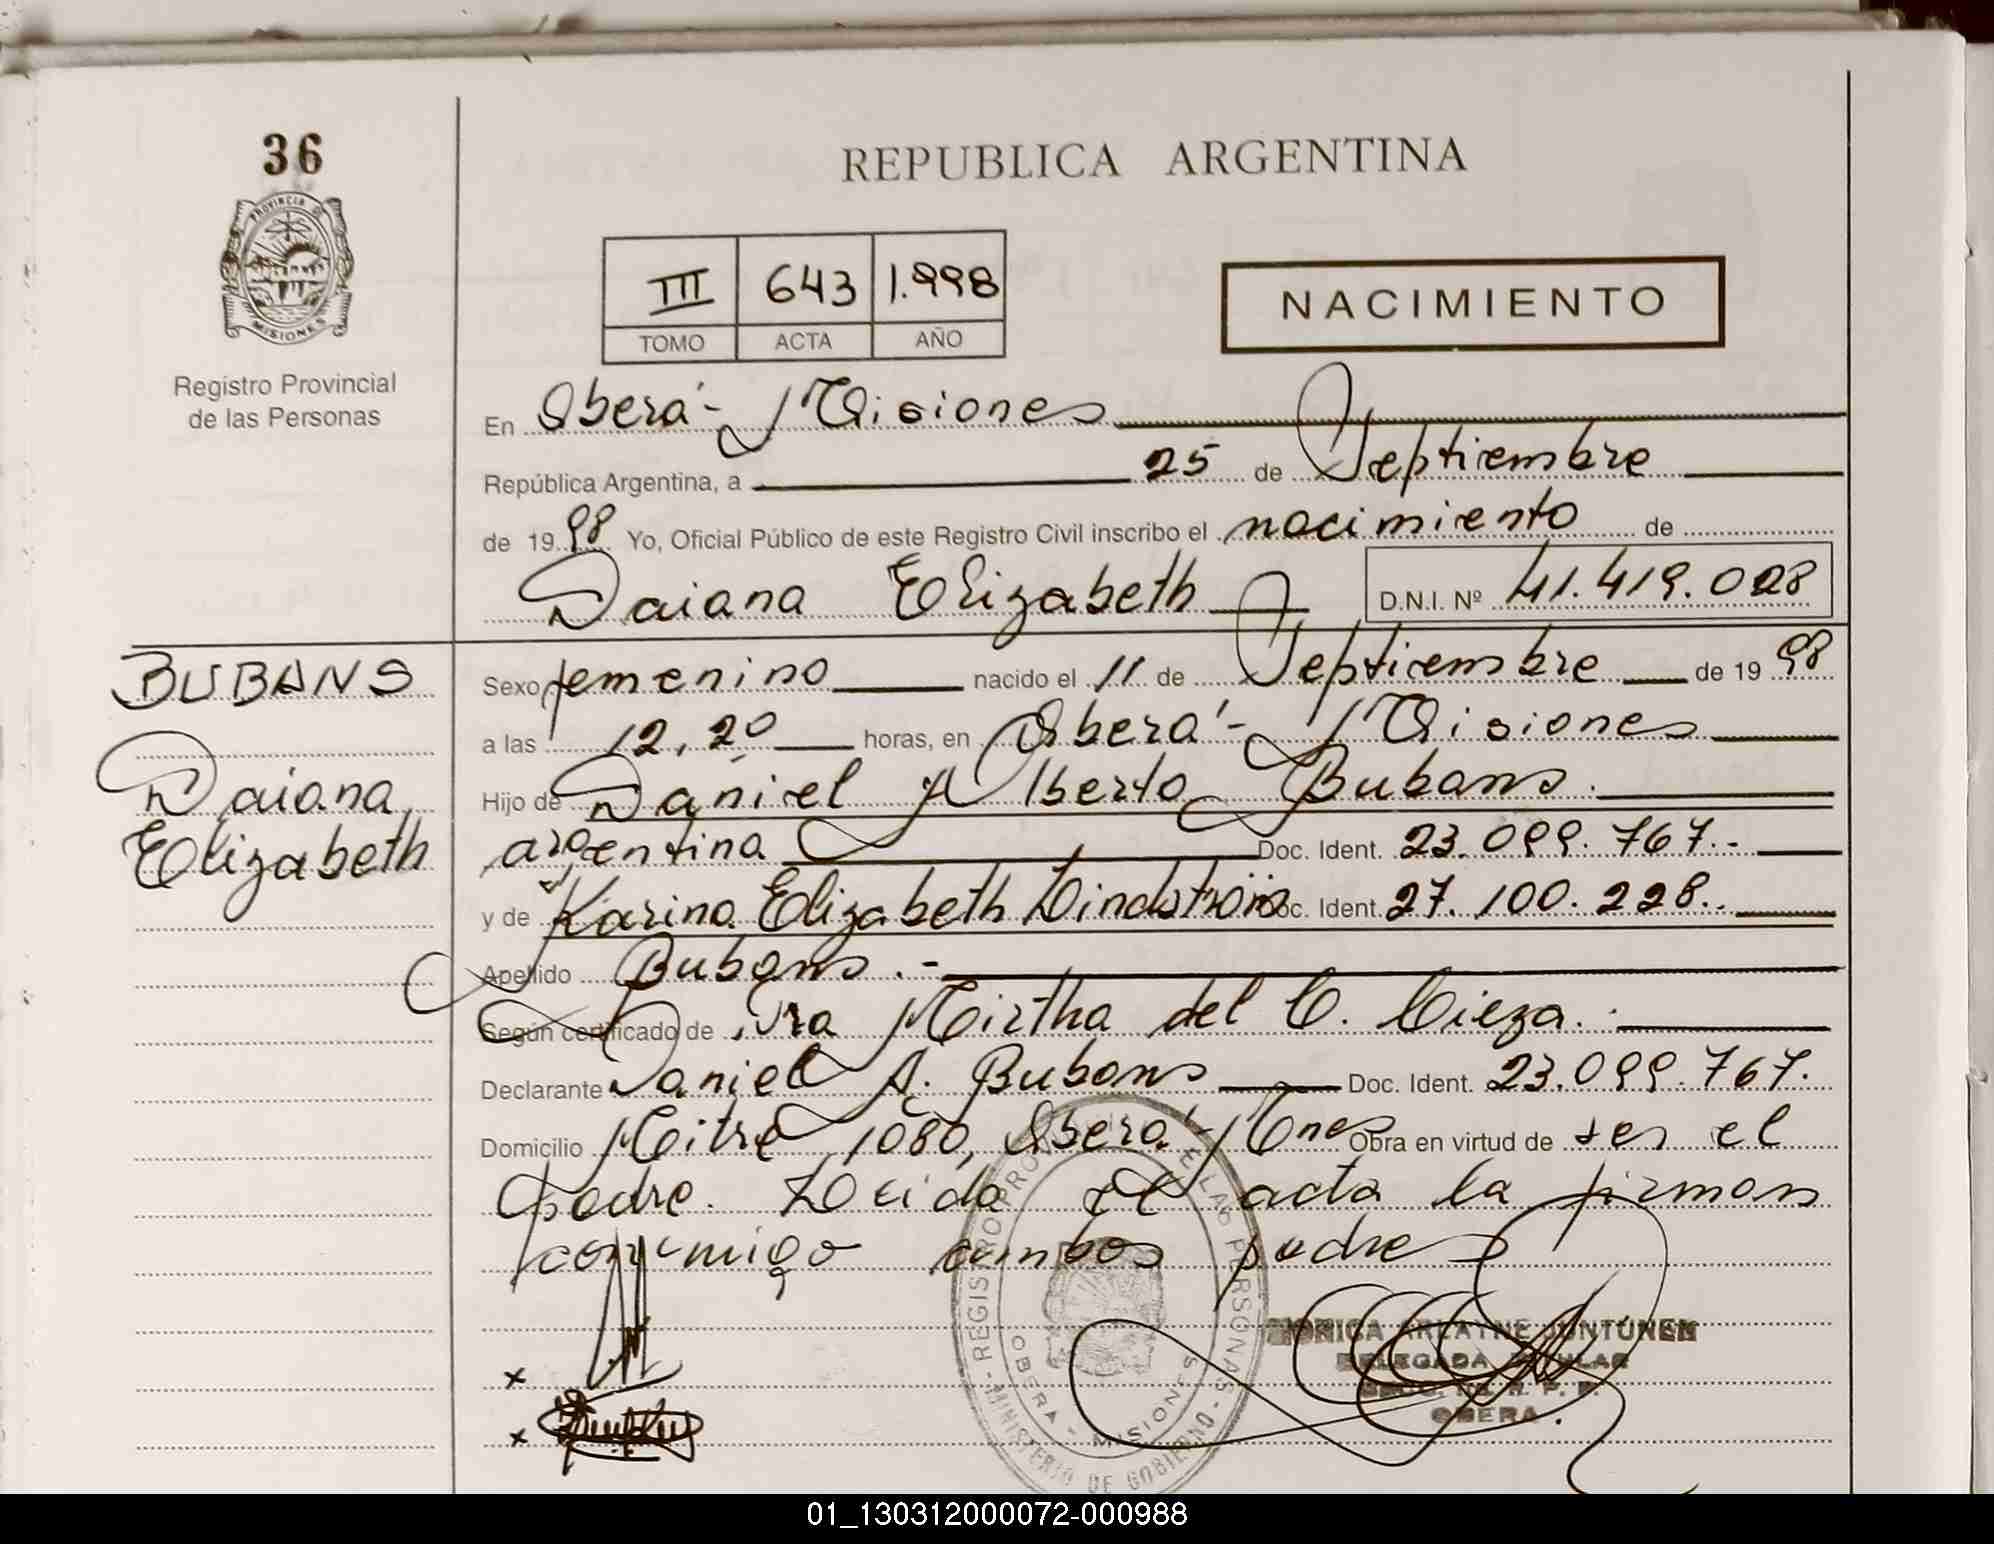 36
PROVINCIA DE
MISIONES
Registro Provincial
de las Personas
REPUBLICA ARGENTINA
III 643 1.998
TOMO ACTA AÑO
NACIMIENTO
En Oberá - Misiones
República Argentina, a 25 de Septiembre
de 1998 Yo, Oficial Público de este Registro Civil inscribo el nacimiento de
Daiana Elizabeth D.N.I. Nº 41.419.028
BUBANS
Daiana
Elizabeth
Sexo femenino nacido el 11 de Septiembre de 1998
a las 12,20 horas, en Oberá - Misiones
Hijo de Daniel Alberto Bubans.
argentina Doc. Ident. 23.099.767.-
y de Karina Elizabeth Lindström Doc. Ident. 27.100.228.-
Apellido Bubans.-
Según certificado de Dra Mirtha del C. Cieza.
Declarante Daniel A. Bubans Doc. Ident. 23.099.767.
Domicilio Mitre 1080, Oberá - Mnes Obra en virtud de ser el
padre. Leida el acta la firman
conmigo ambos padres
REGISTRO PROVINCIAL DE LAS PERSONAS - MINISTERIO DE GOBIERNO -
OBERA - MISIONES
MONICA ARLAYNE JUNTUNEN
DELEGADA TITULAR
R. P. P.
OBERA
x
x
01_130312000072-000988